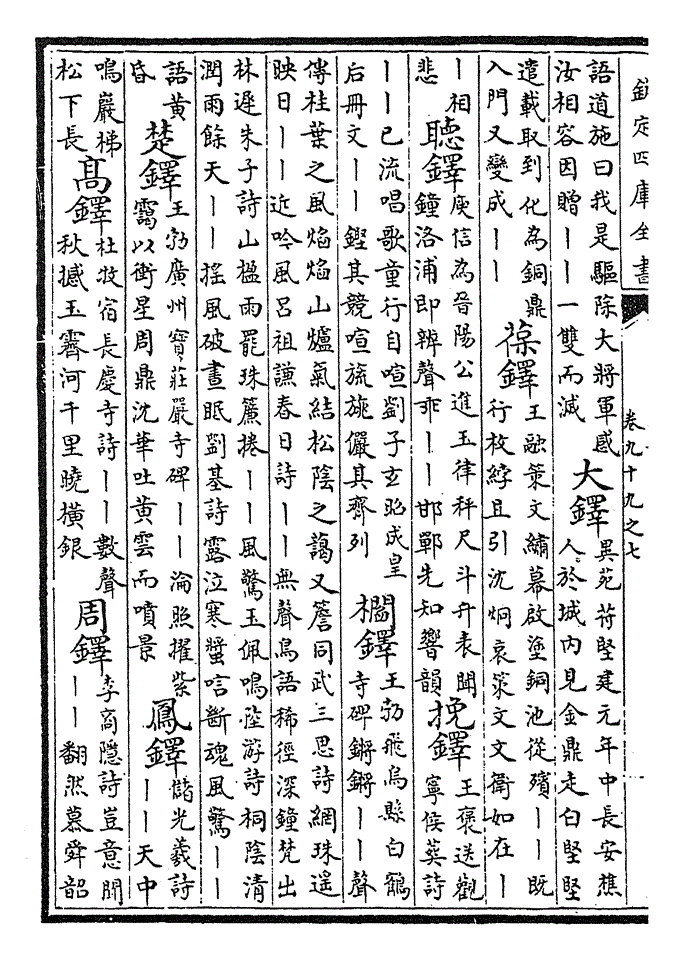 欽定四庫全書
卷九十九之七
語道施曰我是驅除大將軍感
汝相容因贈｜｜一雙而滅
大鐸
異苑苻堅建元年中長安樵
人於城内見金鼎走白堅堅
遣載取到化為銅鼎
入門又變成｜｜
葆鐸
王融策文繡幕啟塗銅池從殯｜｜既
行枚綍且引沈炯哀策文文衛如在｜
｜相
悲
聽鐸
庾信為晉陽公進玉律秤尺斗升表聞
鐘洛浦即辨聲乖｜｜邯鄲先知響韻
挽鐸
王褒送觀
寧侯葬詩
｜｜已流唱歌童行自喧劉子玄昭成皇
后冊文｜｜鏗其競喧旒旐儼其齊列
欄鐸
王勃飛烏縣白鶴
寺碑鏘鏘｜｜聲
傳桂葉之風焰焰山爐氣結松陰之藹又簷同武三思詩網珠遥
映日｜｜近吟風呂祖謙春日詩｜｜無聲鳥語稀徑深鐘梵出
林遲朱子詩山楹雨罷珠簾捲｜｜風驚玉佩鳴陸游詩桐陰清
潤雨餘天｜｜摇風破晝眠劉基詩露泣寒螿唁斷魂風驚｜｜
語黄
昏
楚鐸
王勃廣州寶莊嚴寺碑｜｜淪照擢紫
靄以衝星周鼎沈華吐黄雲而噴景
鳳鐸
儲光羲詩
｜｜天中
鳴巖梯
松下長
高鐸
杜牧宿長慶寺詩｜｜數聲
秋撼玉霽河千里曉橫銀
周鐸
李商隱詩豈意聞
｜｜翻然慕舜韶